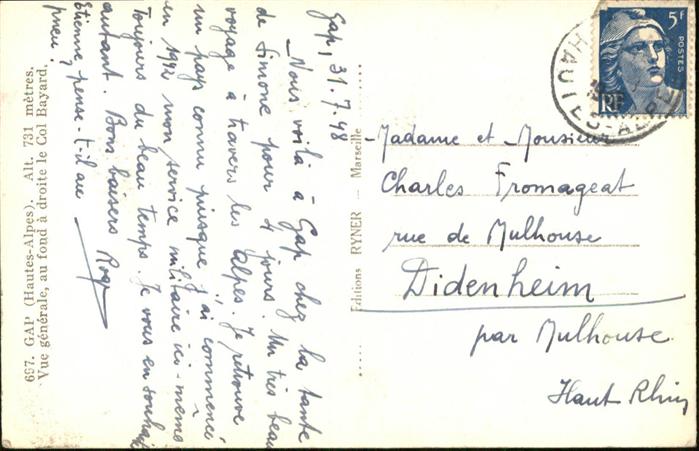 Gap, 31.7.48
Nous voilà à Gap chez la tante
de Simone pour 4 jours. Un très beau
voyage à travers les Alpes. Je retrouve
un pays connu puisque j'ai commencé
en 1942 mon service militaire ici-même
Toujours du beau temps. Je vous en souhaite
autant. Bons baisers Roger
Etienne pense-t-il au
pneu ?
667. GAP (Hautes-Alpes). Alt. 731 mètres.
Vue générale, au fond à droite le Col Bayard.
Editions RYNER — Marseille
5F
POSTES
RF
HAUTES-ALPES
Madame et Monsieur
Charles Fromageat
rue de Mulhouse
Didenheim
par Mulhouse
Haut Rhin